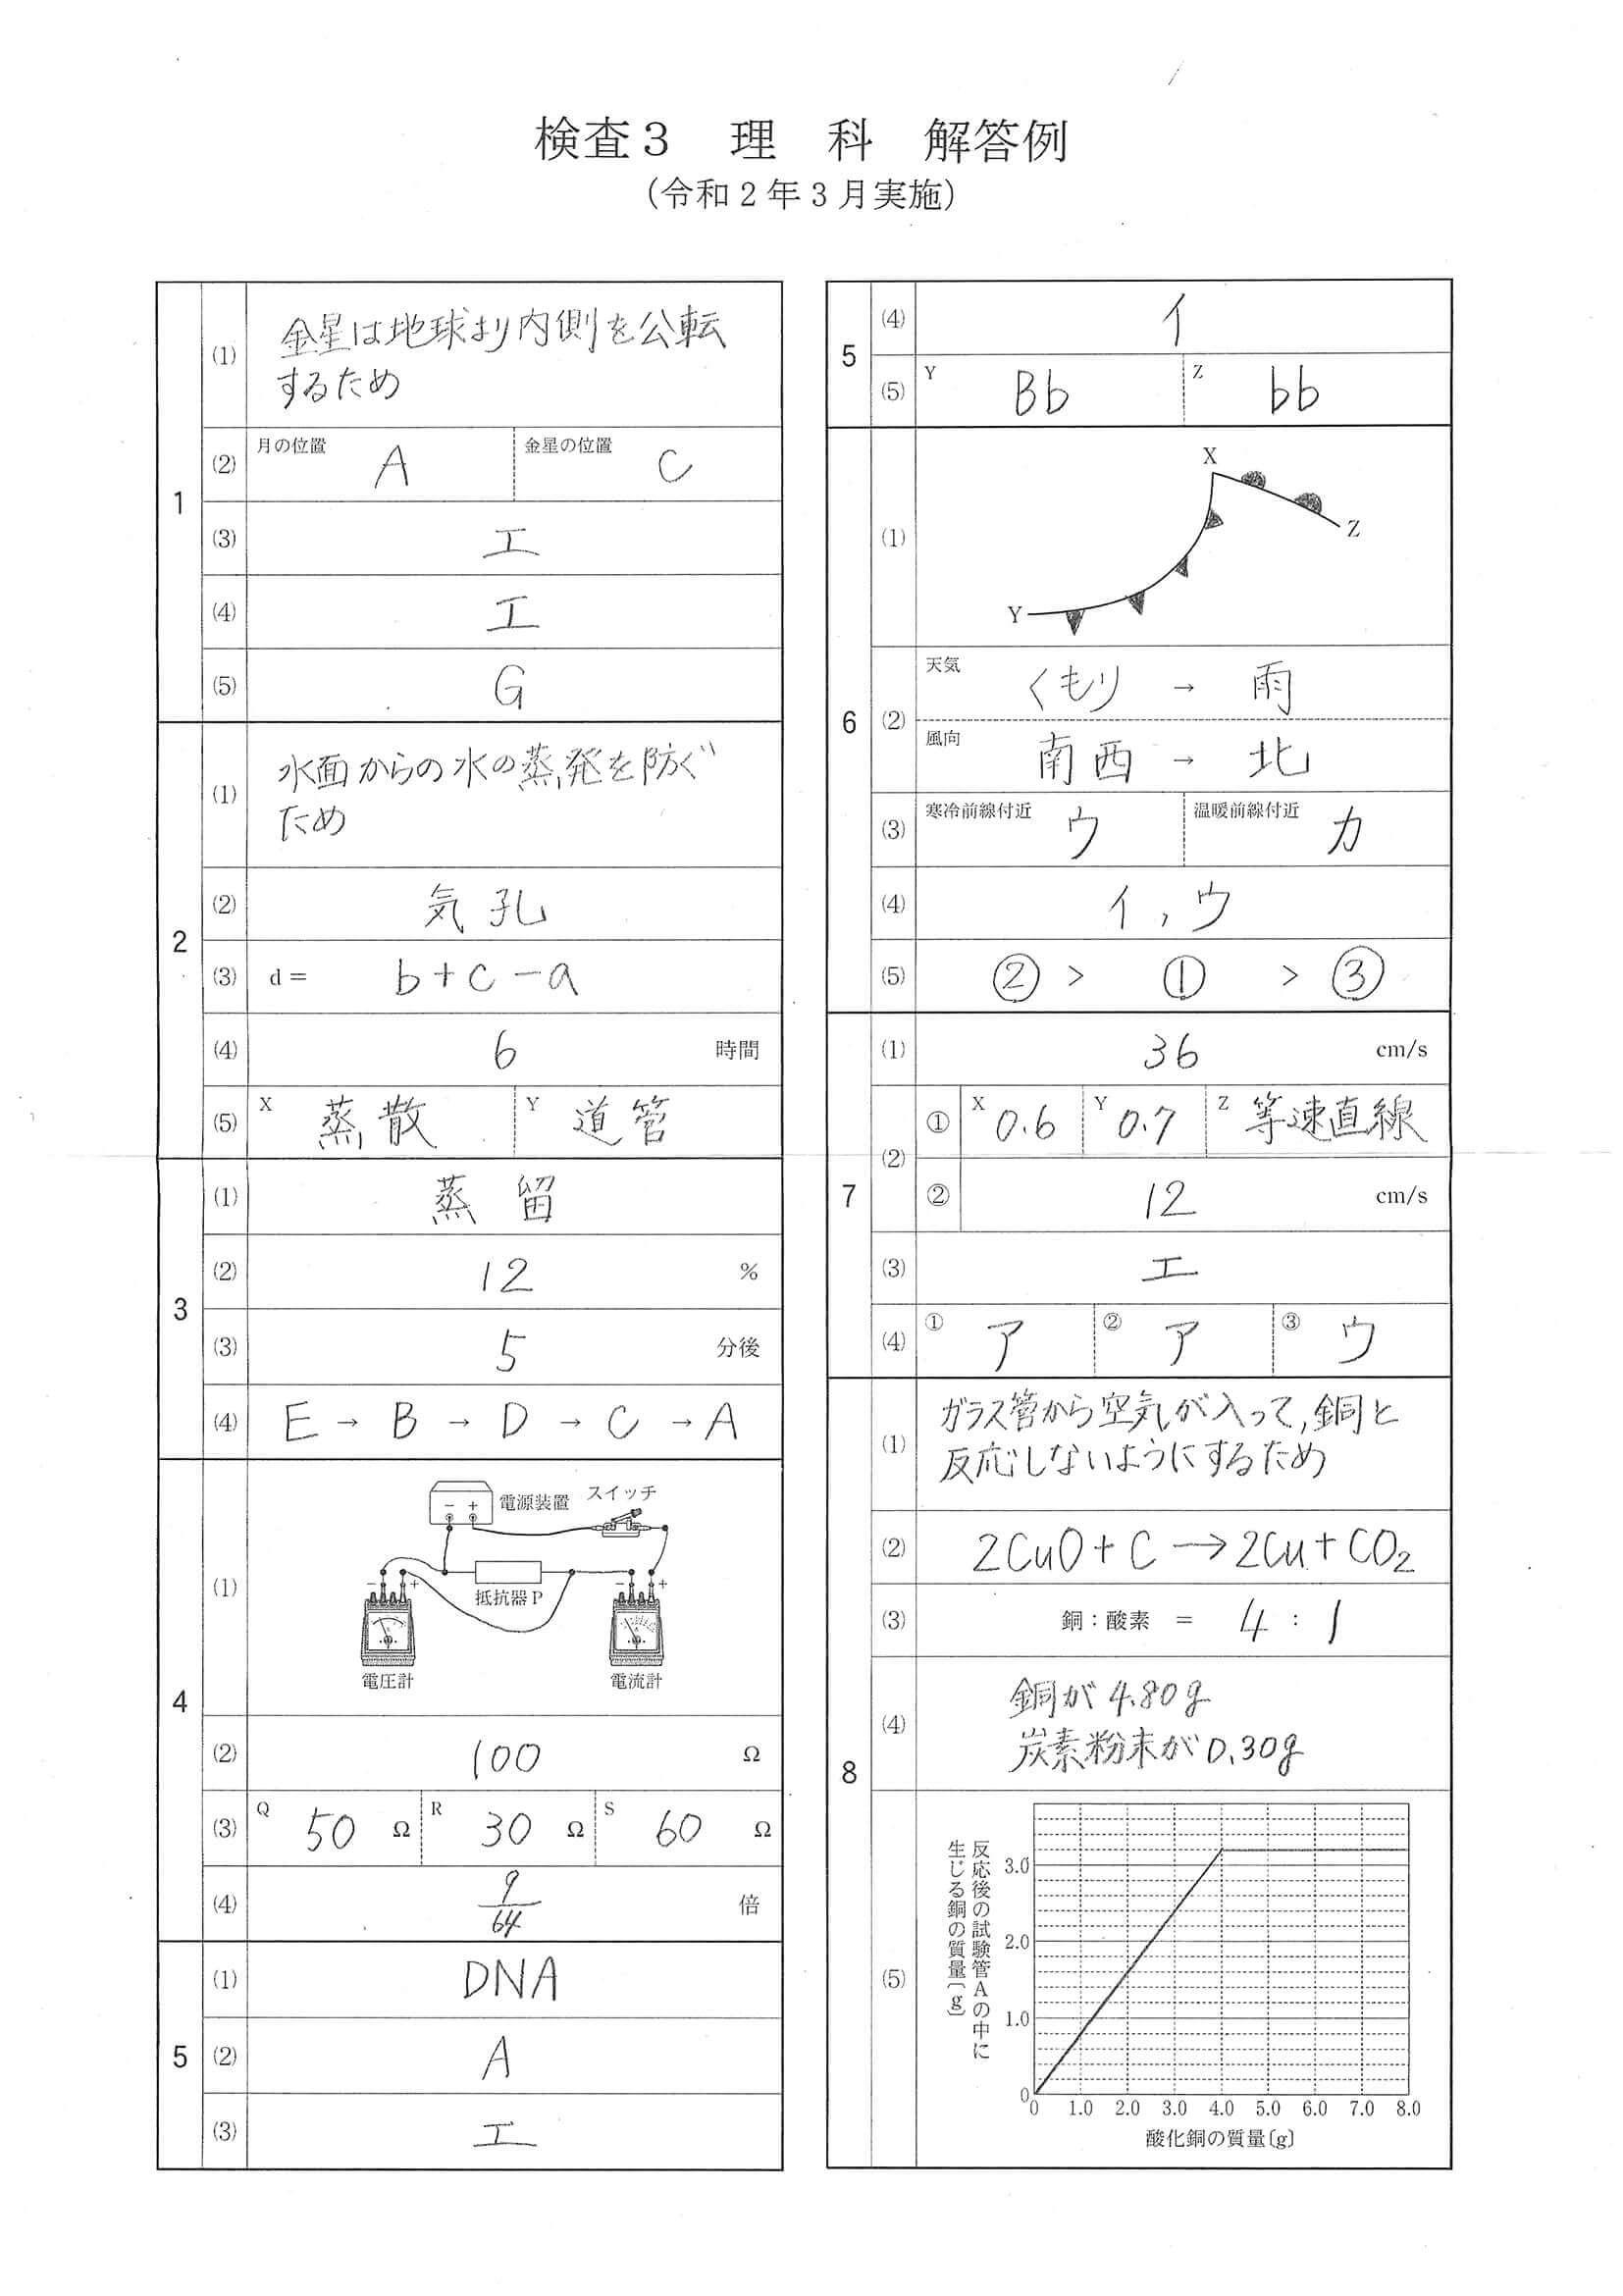 検査3 理科 解答例
(令和2年3月実施)
1
(1) 金星は地球より内側を公転
するため
(2) 月の位置 A 金星の位置 C
(3) エ
(4) エ
(5) G
2
(1) 水面からの水の蒸発を防ぐ
ため
(2) 気孔
(3) d= b+c-a
(4) 6 時間
(5) X 蒸散 Y 道管
3
(1) 蒸留
(2) 12 %
(3) 5 分後
(4) E → B → D → C → A
4
(1)
電源装置 スイッチ
- +
- + 抵抗器P - +
電圧計 電流計
(2) 100 Ω
(3) Q 50 Ω R 30 Ω S 60 Ω
(4) 9/64 倍
5
(1) DNA
(2) A
(3) エ
5
(4) イ
(5) Y Bb Z bb
6
(1)
X
Z
Y
(2) 天気 くもり → 雨
風向 南西 → 北
(3) 寒冷前線付近 ウ 温暖前線付近 カ
(4) イ,ウ
(5) ② > ① > ③
7
(1) 36 cm/s
(2) ① X 0.6 Y 0.7 Z 等速直線
② 12 cm/s
(3) エ
(4) ① ア ② ア ③ ウ
8
(1) ガラス管から空気が入って,銅と
反応しないようにするため
(2) 2CuO+C→2Cu+CO₂
(3) 銅:酸素 = 4 : 1
(4) 銅が4.80g
炭素粉末が0.30g
(5)
反応後の試験管Aの中に
生じる銅の質量〔g〕
3.0
2.0
1.0
0
0 1.0 2.0 3.0 4.0 5.0 6.0 7.0 8.0
酸化銅の質量〔g〕